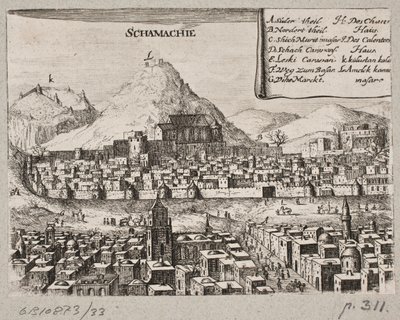 SCHAMACHIE
k
L
A Suder theil
B. Nordert theil
C. Schich Murat masar
D. Schach Carawan
E. Leski Carawan
F. Weg zum Basar
G. Marckt.
H. Des Chans
Haus
I. Des Calenten
Haus
K. kulustan kale
L. Amelik kanna
masare
6B10873/33
p. 311.